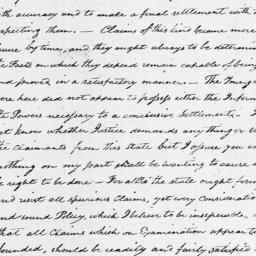 with accuracy and to make a final settlement with
respecting them. — Claims of this kind become more
by time, and they ought always to be determined
the Facts on which they depend remain capable of being
and proved in a satisfactory manner. —
here did not appear to possess either the Inform
the Powers necessary to a conclusive Settlement. —
not know whether Justice demands any thing or
the Claimants from this State but I assure you
nothing on my part shall be wanting to cause
be right to be done — For altho the State ought
and resist all spurious Claims, yet every Consideration
and sound Policy, which I believe to be inseperable
that all Claims which on Examination appear to
founded, should be readily and fairly satisfied